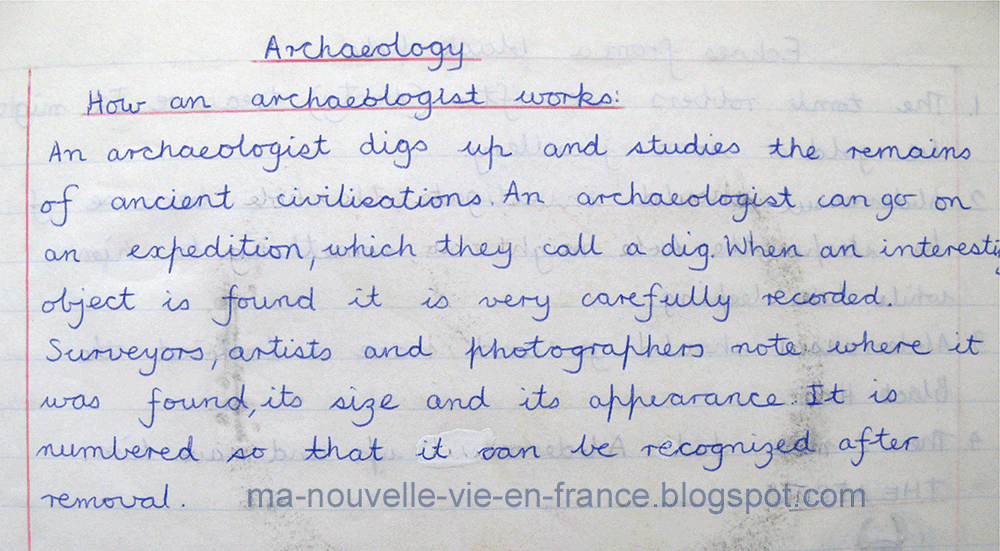 Archaeology
How an archaeologist works:
An archaeologist digs up and studies the remains
of ancient civilisations. An archaeologist can go on
an expedition, which they call a dig. When an interesti
object is found it is very carefully recorded.
Surveyors, artists and photographers note where it
was found, its size and its appearance. It is
numbered so that it can be recognized after
removal.
ma-nouvelle-vie-en-france.blogspot.com